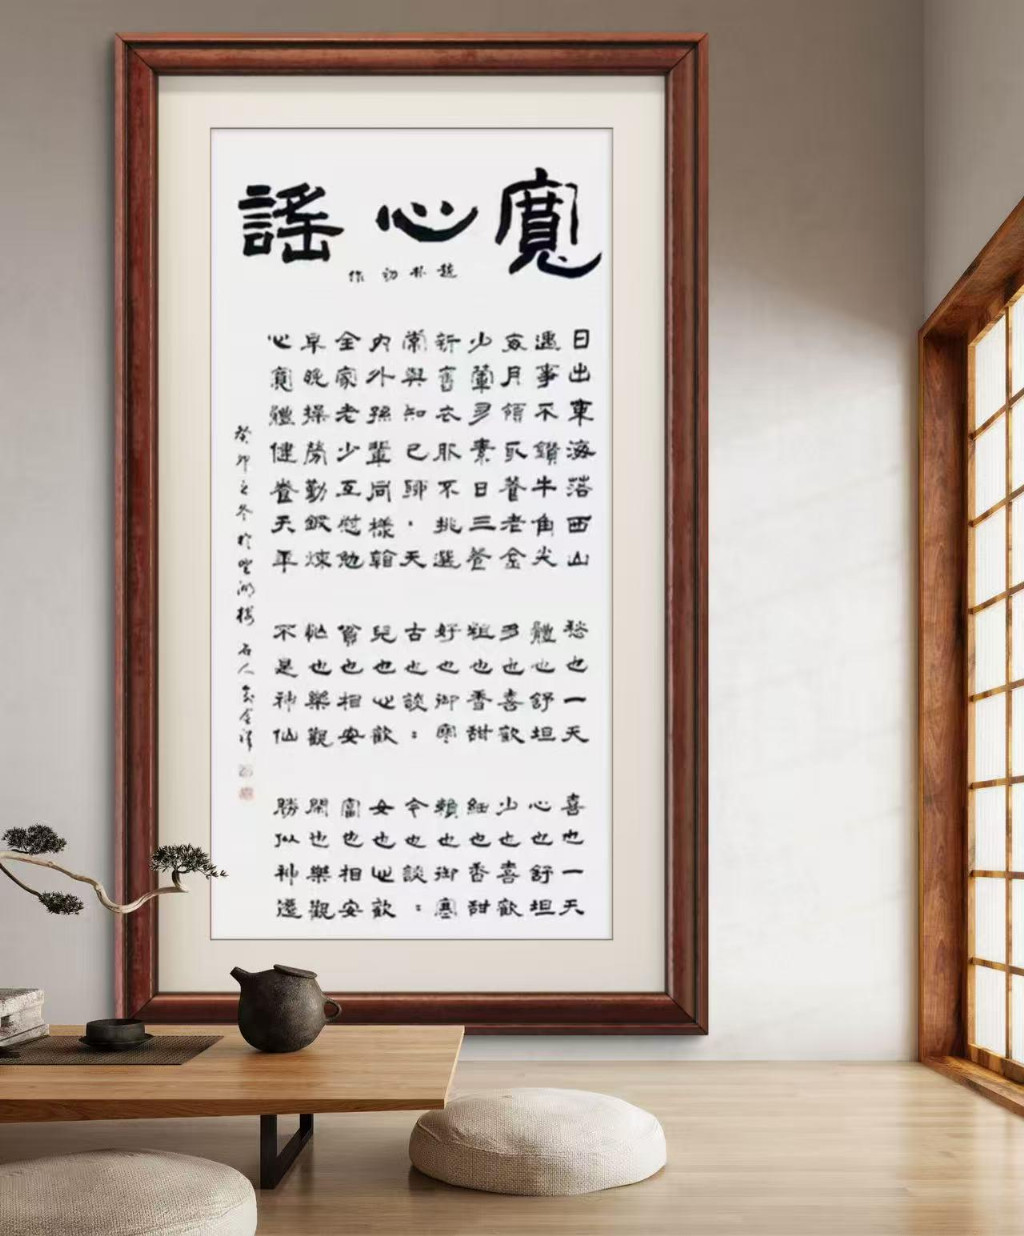 寬心謠
趙朴初作
日出東海落西山 愁也一天 喜也一天
遇事不鑽牛角尖 體也舒坦 心也舒坦
每月領取養老金 多也喜歡 少也喜歡
少葷多素日三餐 粗也香甜 細也香甜
新舊衣服不挑選 好也御寒 賴也御寒
常與知己聊〻天 古也談〻 今也談〻
內外孫輩同樣看 兒也心歡 女也心歡
全家老少互慰勉 貧也相安 富也相安
早晚操勞勤鍛煉 忙也樂觀 閑也樂觀
心寬體健養天年 不是神仙 勝似神僊
癸卯之冬於望湖樓 石人